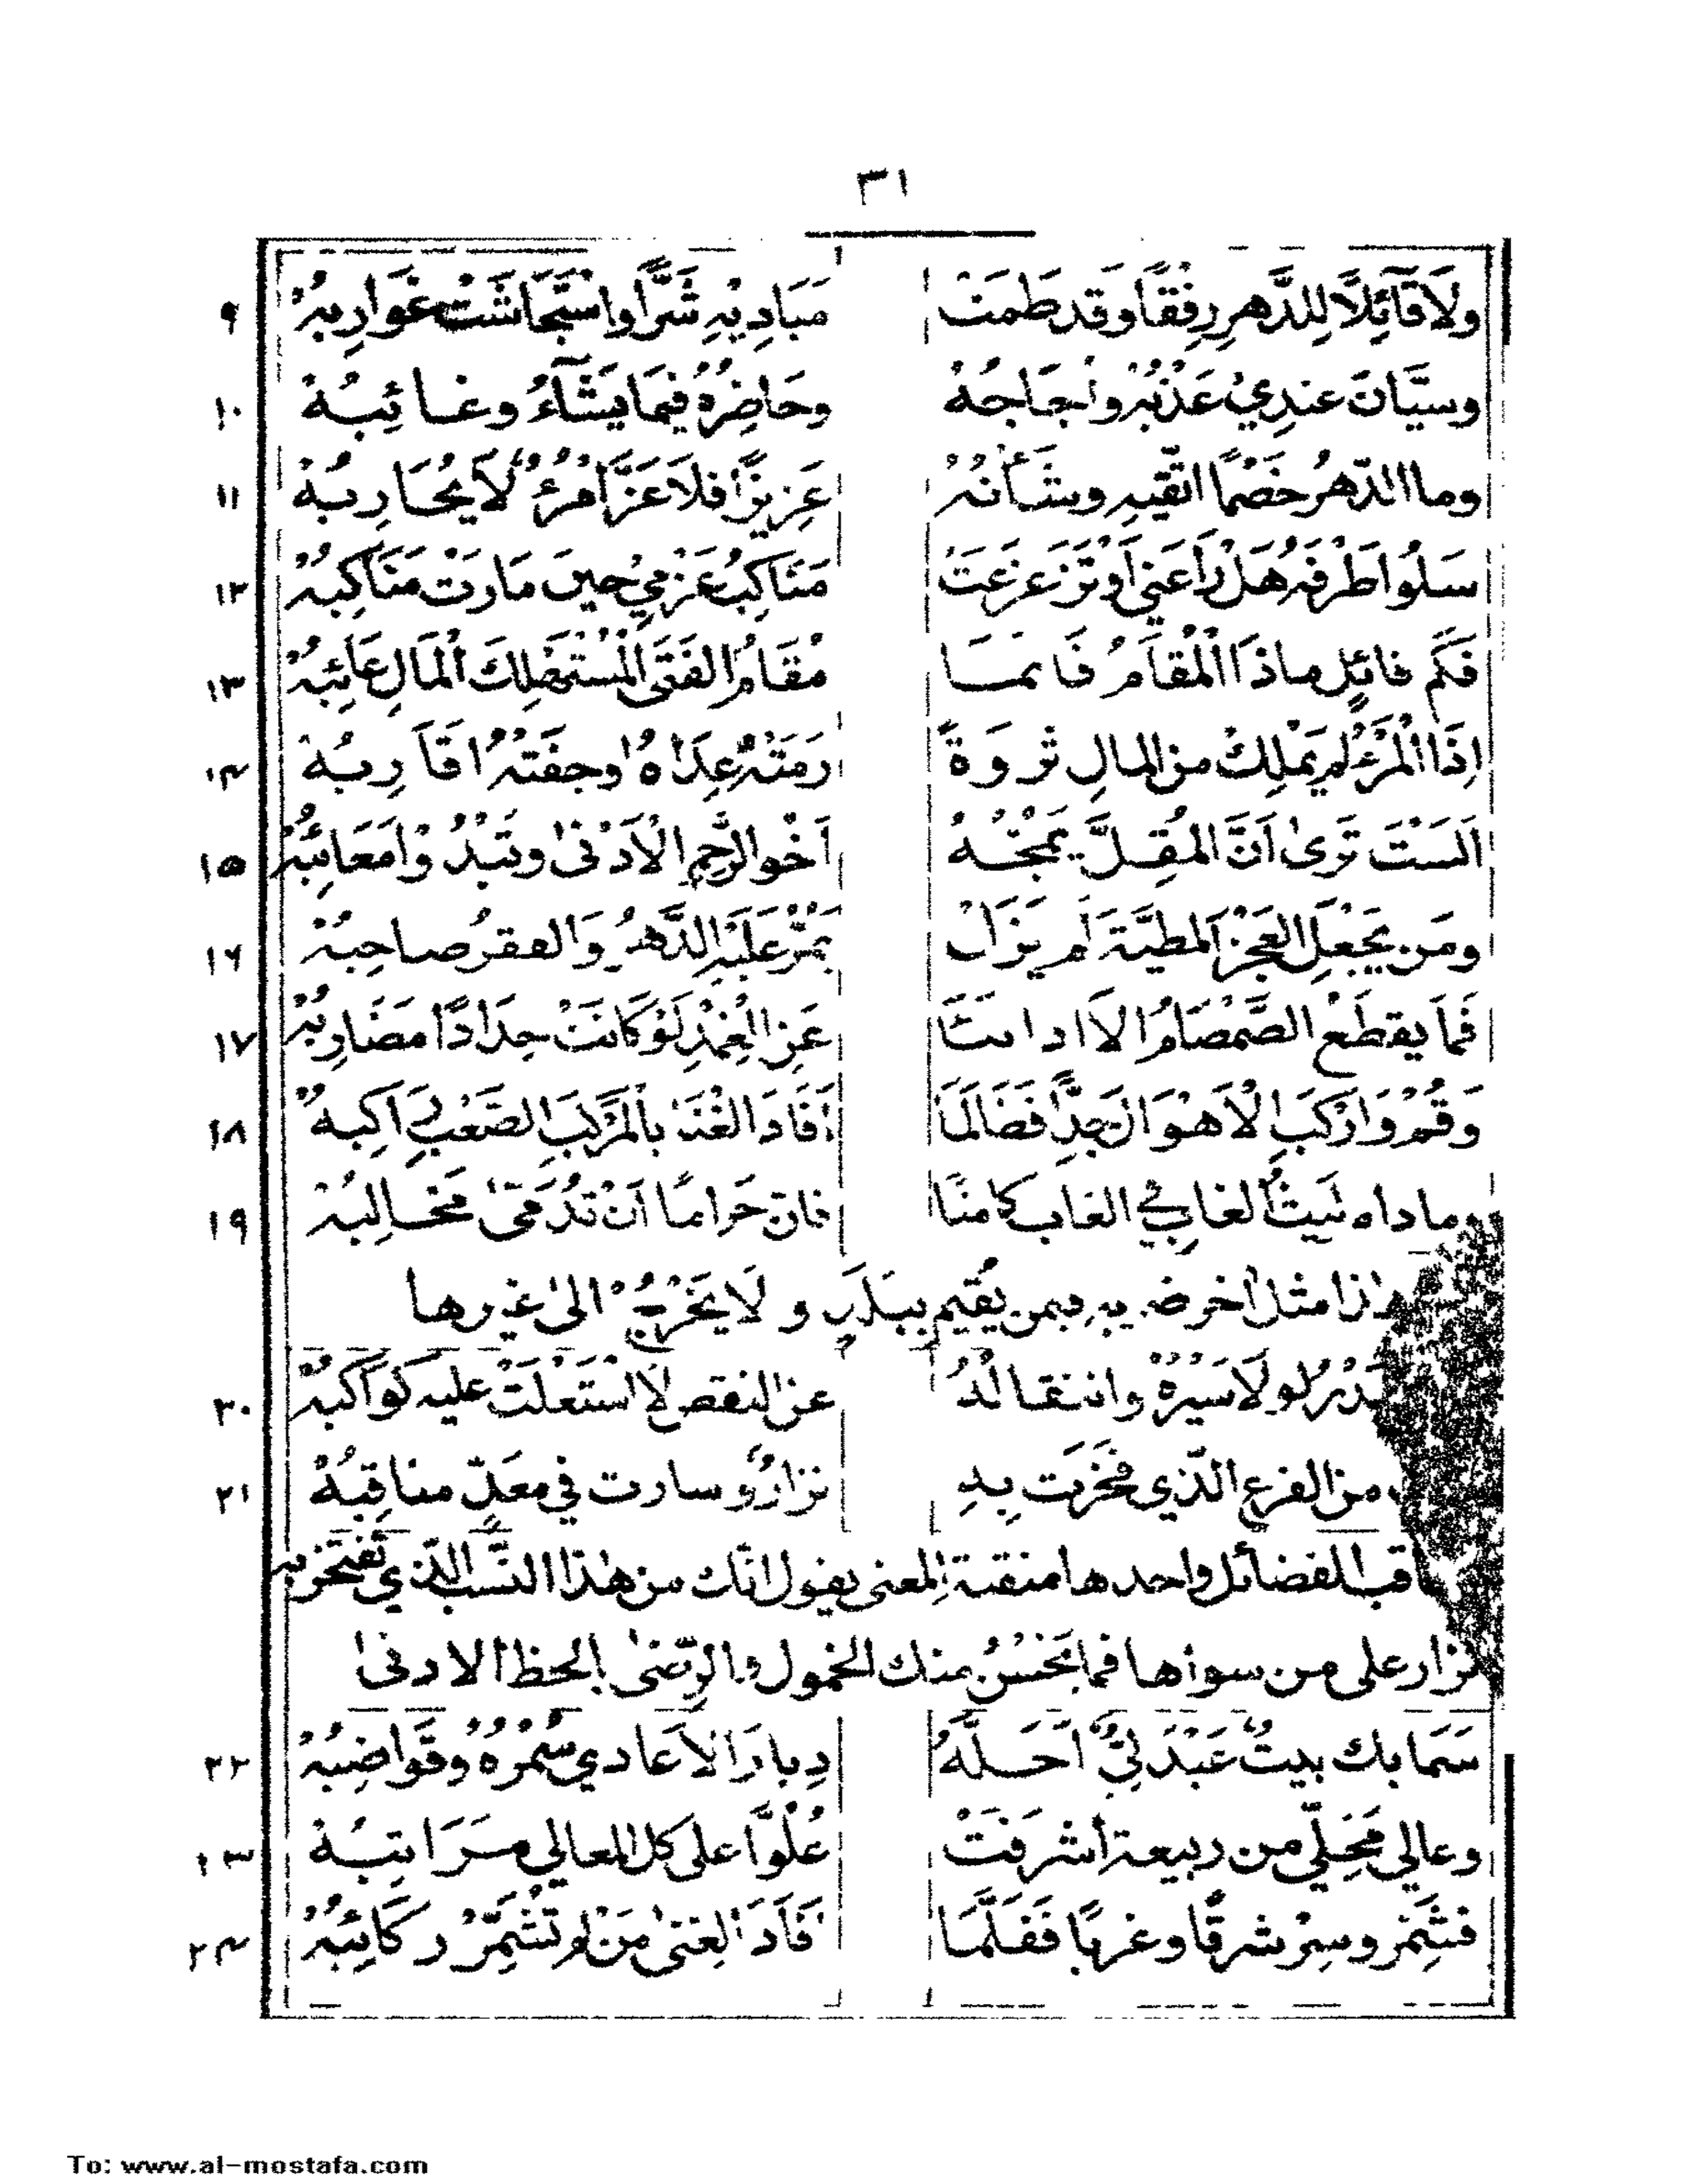 ٣١
ولَا قَآئِلًا لِلدَّهرِ رِفْقًا وَقد طَمَتْ مَبَادِيْهِ شَرًّا وَاسْتَجَاشَتْ غَوارِبُهْ ٩
وسيَّانَ عندِيْ عَذْبُهُ وأجَاجُهُ وحَاضِرُهُ فيمَا يَشَآءُ وغَائِبُهْ ١٠
وما الدّهرُ خَصْمًا اتّقيهِ وشَأنُهُ عَزِيزًا فلَا عَزَّ امْرُءٌ لَا يُحَارِبُهْ ١١
سَلُوا طَرْفَهُ هَلْ رَاعَني اَوْ تَزَعزعَتْ مَنَاكِبُ عَزْمِيْ حينَ مَارَتْ مَنَاكِبُهْ ١٢
فَكَم قائِلٍ ماذَا الْمُقَامُ فَإنمَا مُقَامُ الفَتَى الْمُسْتَهْلِكَ الْمَالِ عَائِبُهْ ١٣
اِذَا الْمَرْءُ لم يَمْلِكْ من المالِ ثروَةً رَمَتْهُ عِدَاهُ وجفَتْهُ اقَارِبُهْ ١٤
اَلَسْتَ تَرىٰ اَنَّ المُقِلَّ يَمُجُّهُ اَخُو الرَّحِمِ الْاَدْنىٰ وتَبْدُوْ مَعَائِبُهْ ١٥
ومَن يَجْعَلِ العَجْزَ المطيَّةَ لَم يَزَلْ يَمُرُّ عَلَيْهِ الدَّهرُ وَالفقرُ صاحِبُهْ ١٦
فَمَا يقطَع الصَّمْصَامُ الاَّ اذا انتَأَى عَنِ الْغِمْدِ لَوْ كَانَتْ حِدَادًا مَضَارِبُهْ ١٧
وَقُمْ وَارْكَبِ الْاَهْوَالَ جِدًّا فَطَالَمَا اَفَادَ الغِنىٰ بالْمَركَبِ الصَّعْبِ رَاكِبُهْ ١٨
وما دام لَيثُ الغابِ في الغاب كامنًا فإن حَرامًا اَنْ تُدَمّىٰ مَخالِبُهْ ١٩
هٰذا مثل اخر ضربه فيمن يُقيم ببَلَدٍ و لَا يَخْرُجُ الىٰ غيرها
بَدْرُ لولَا سَيْرُهُ وانتقالُهُ عن النقص لَا اسْتَعْلَتْ عليه كَوَاكِبُهْ ٢٠
من الفرع الّذي فَخَرَت بِهِ نزارٌ وسارت في معَدٍّ مناقِبُهْ ٢١
قب الفضائل واحدها منقبة المعنى يقول انّك من هٰذا النّسَب الّذي تفتَخر به
نزار على من سواها فما يَحْسُنُ منك الخمول والرّضىٰ بالحظ الادنىٰ
سَمَا بك بيتٌ عَبْدَلِيٌّ اَحَلَّهُ دِيارَ الاَعادي سُمْرُهُ وقَواضِبُهْ ٢٢
وعالي مَحَلٍّ من ربيعة أشرفَتْ عُلُوًّا على كل المعالي مَرَاتِبُهْ ٢٣
فشَمِّر وسِرْ شرقًا وغربًا فَقَلَّمَا اَفَادَ الغِنىٰ مَنْ لم تُشَمِّرْ رَكَائِبُهْ ٢٤
To: www.al-mostafa.com